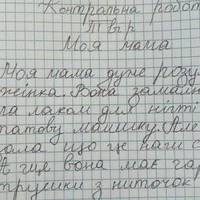 Контрольна робот
Твір
Моя мама
Моя мама дуже розу
жінка. Вона замали
ла лаком для нігті
татову машину. Але
зала що це наш с
А ще вона має гар
трусики з ниточок